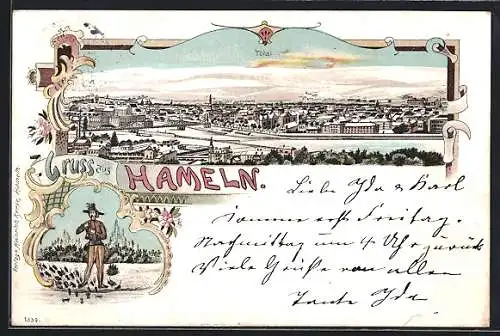 Total
Gruss aus
HAMELN.
Liebe Ida & Karl
komme erst Freitag
Nachmittag um 4 Uhr zurück
Viele Grüße von allen
Tante Ida
1330.